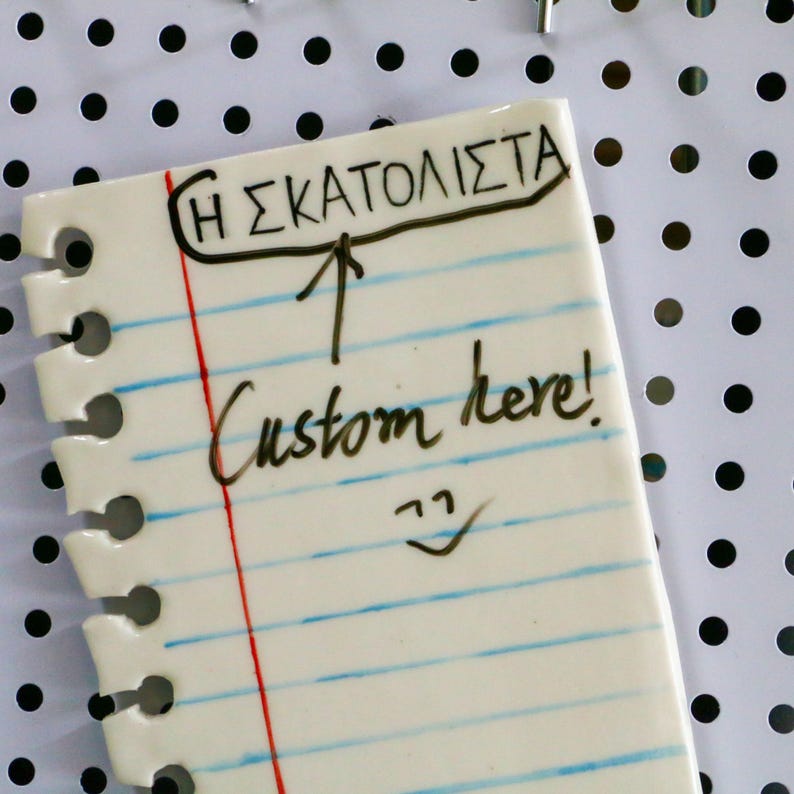 Η ΣΚΑΤΟΛΙΣΤΑ
Custom here!